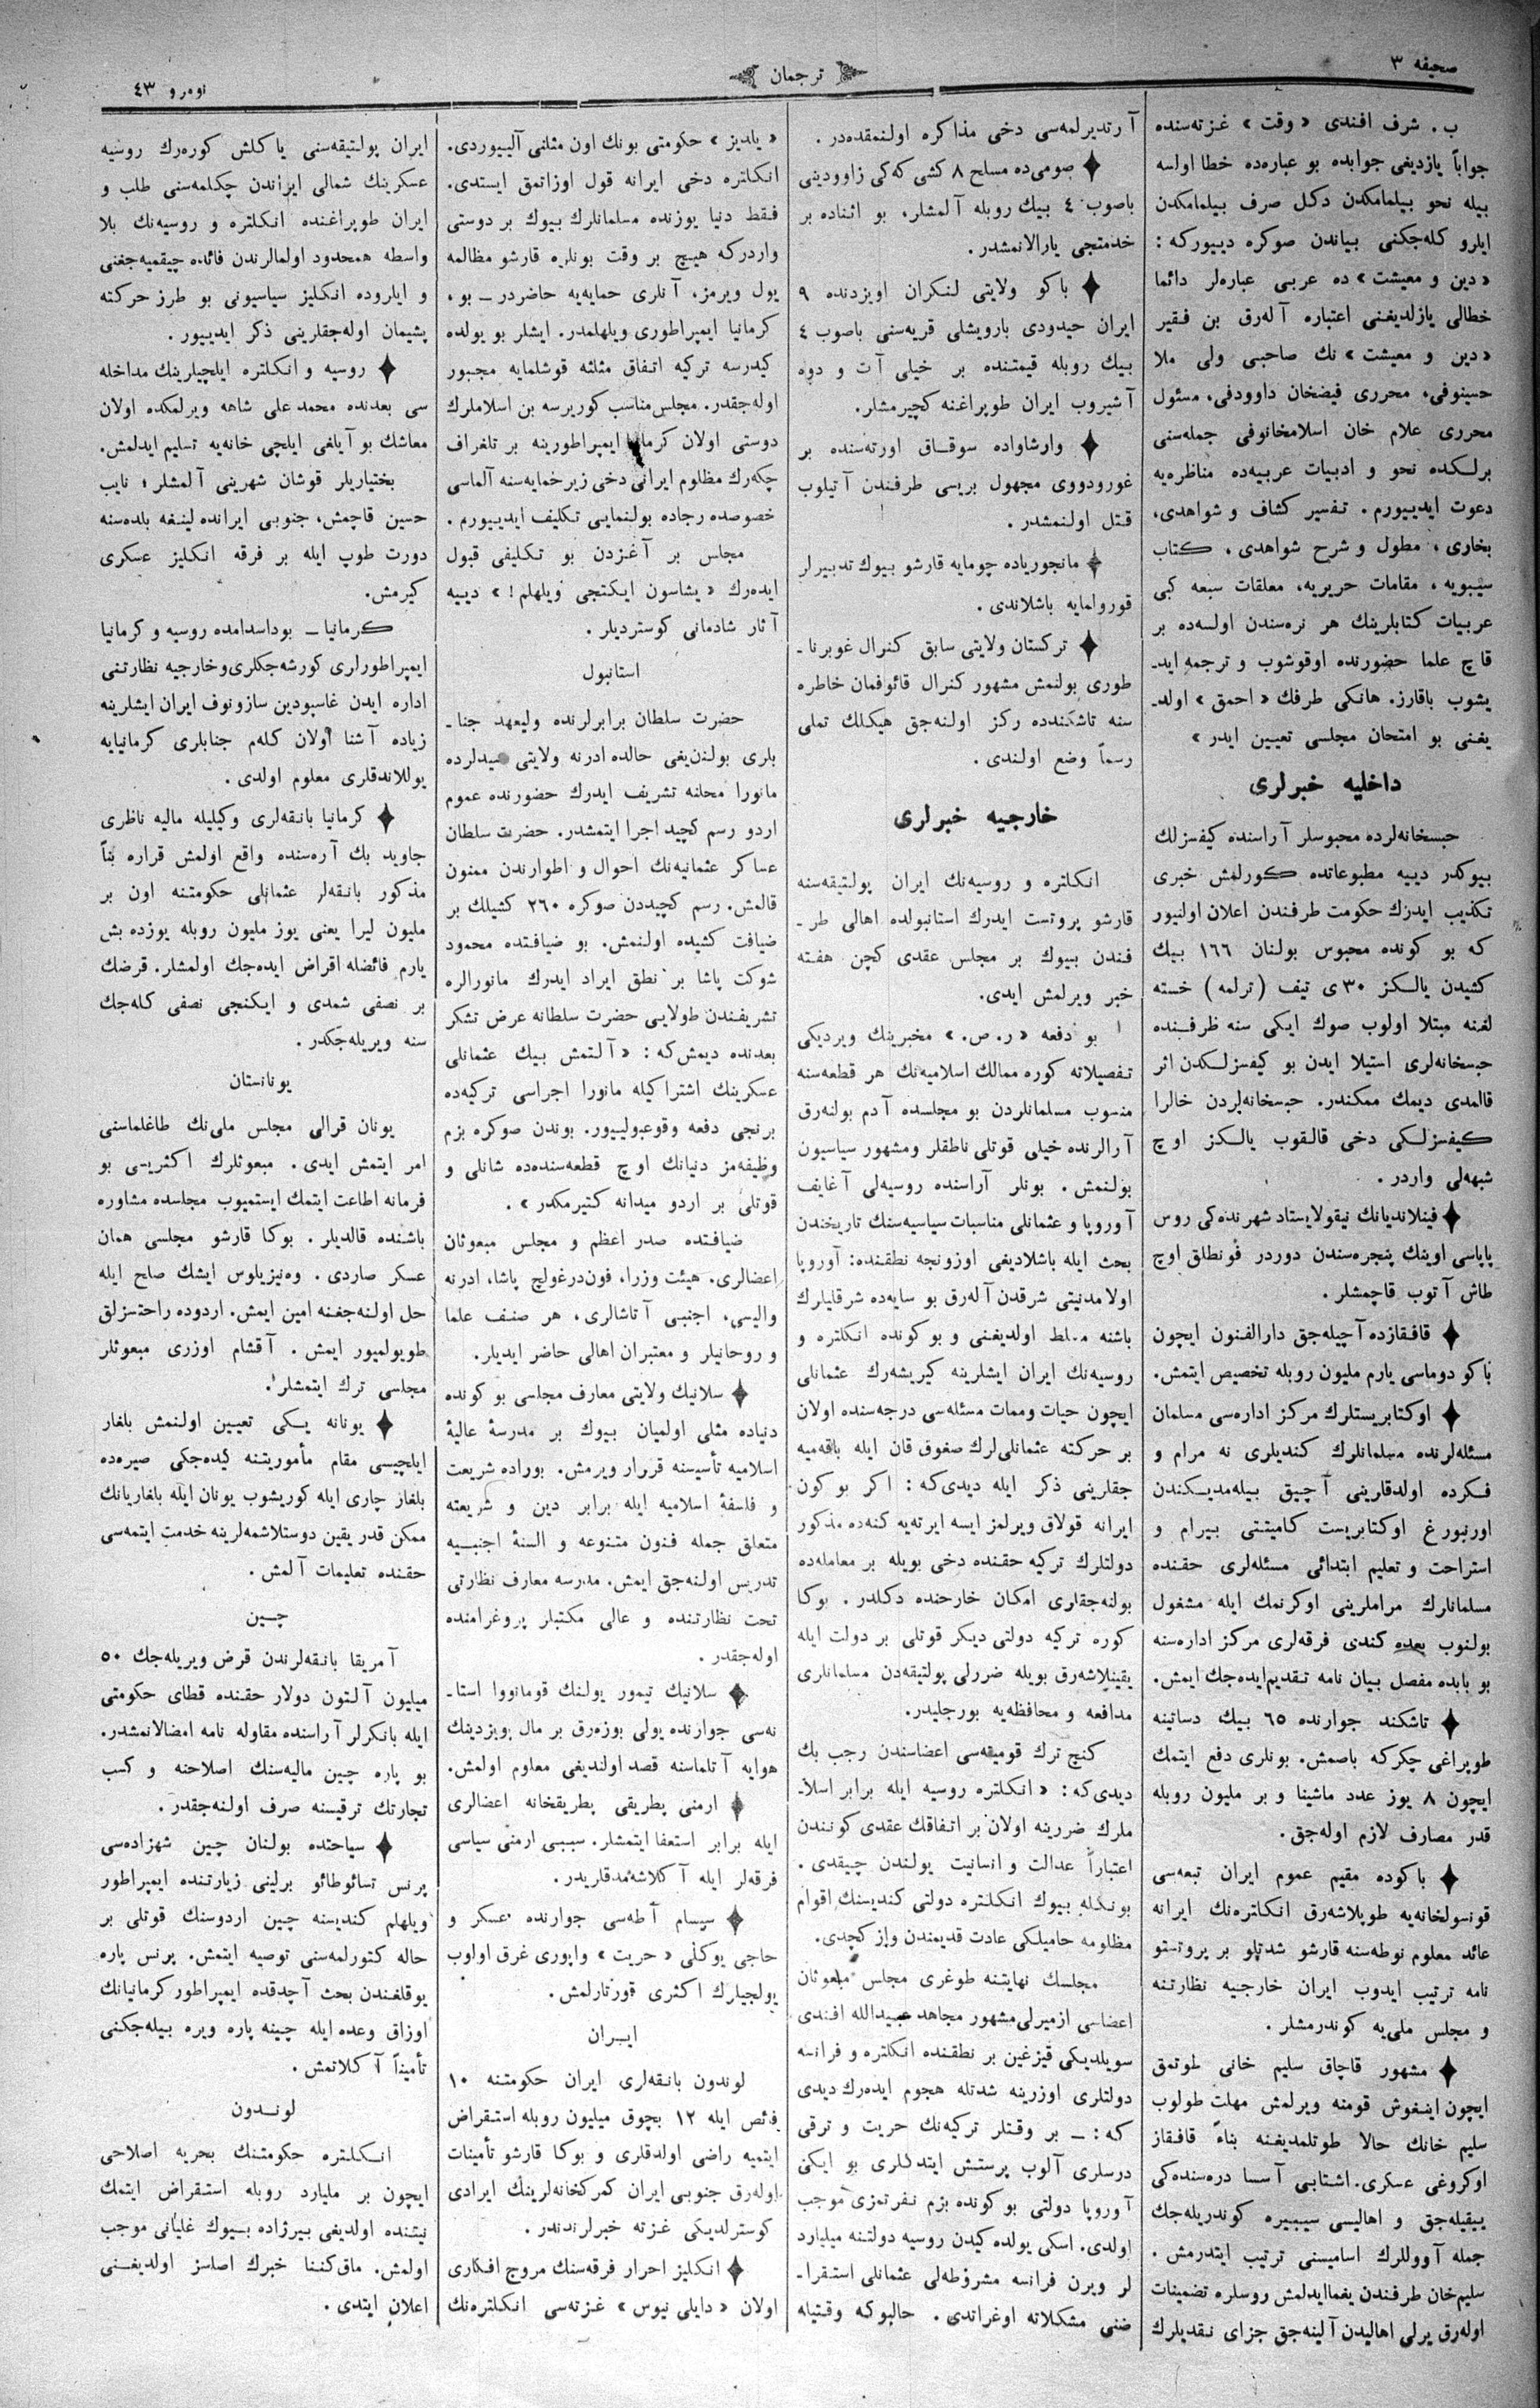 صحیفه ٣
ترجمان
نومرو ٤٣
ب. شرف افندی « وقت » غزته‌سنده
جواباً یازدیغی جوابده بو عباره‌ده خطا اولسه
بیله نحو بیلمامکدن دکل صرف بیلمامکدن
ایلرو کله‌جکنی بیاندن صوکره دییورکه :
« دین و معیشت » ده عربی عباره‌لر دائما
خطالی یازلدیغنی اعتباره آله‌رق بن فقیر
« دین و معیشت » نك صاحبی ولی ملا
حسینوفی، محرری فیضخان داوودفی، مسئول
محرری علام خان اسلامخانوفی جمله‌سنی
برلکده نحو و ادبیات عربیه‌ده مناظره‌یه
دعوت ایدییورم . تفسیر کشاف و شواهدی،
بخاری ، مطول و شرح شواهدی ، کتاب
سیبویه ، مقامات حریریه، معلقات سبعه کبی
عربیات کتابلرینك هر نره‌سندن اولسه‌ده بر
قاچ علما حضورنده اوقوشوب و ترجمه اید-
یشوب باقارز. هانکی طرفك « احمق » اولد-
یغنی بو امتحان مجلسی تعیین ایدر »
داخلیه خبرلری
حبسخانه‌لرده محبوسلر آراسنده کیفسزلك
بیوکدر دییه مطبوعاتده کورلمش خبری
تکذیب ایدرك حکومت طرفندن اعلان اولنیور
که بو کونده محبوس بولنان ١٦٦ بیك
کشیدن یالکز ٣٠ ی تیف ( ترلمه ) خسته
لغنه مبتلا اولوب صوك ایکی سنه ظرفنده
حبسخانه‌لری استیلا ایدن بو کیفسزلکدن اثر
قالمدی دیمك ممکندر. حبسخانه‌لردن خالرا
کیفسزلکی دخی قالقوب یالکز اوچ
شبهه‌لی واردر .
فینلاندیانك نیقولایستاد شهرنده‌کی روس
پاپاسی اوینك پنجره‌سندن دوردر فونطلق اوچ
طاش آتوب قاچمشلر .
قافقازده آچیله‌جق دارالفنون ایچون
باکو دوماسی یارم ملیون روبله تخصیص ایتمش.
اوکتابریستلرك مرکز اداره‌سی مسلمان
مسئله‌لرنده مسلمانلرك کندیلری نه مرام و
فکرده اولدقارینی آچیق بیله‌مدیکندن
اورنبورغ اوکتابریست کامیتتی بیرام و
استراحت و تعلیم ابتدائی مسئله‌لری حقنده
مسلمانلرك مراملرینی اوکرنمك ایله مشغول
بولنوب بعده کندی فرقه‌لری مرکز اداره‌سنه
بو بابده مفصل بیان نامه تقدیم ایده‌جك ایمش.
تاشکند جوارنده ٦٥ بیك دساتینه
طوپراغی چکرکه باصمش. بونلری دفع ایتمك
ایچون ٨ یوز عدد ماشینا و بر ملیون روبله
قدر مصارف لازم اوله‌جق.
باکوده مقیم عموم ایران تبعه‌سی
قونسولخانه‌یه طوپلاشه‌رق انکلتره‌نك ایرانه
عائد معلوم نوطه‌سنه قارشو شدتلو بر پروتستو
نامه ترتیب ایدوب ایران خارجیه نظارتنه
و مجلس ملی‌یه کوندرمشلر .
مشهور قاچاق سلیم خانی طوتمق
ایچون اینغوش قومنه ویرلمش مهلت طولوب
سلیم خانك حالا طوتلمدیغنه بناءً قافقاز
اوکروغی عسکری. اشتابی آسسا دره‌سنده‌کی
ییقیله‌جق و اهالیسی سیبیره کوندریله‌جك
جمله آووللرك اسامیسنی ترتیب ایتدرمش .
سلیم‌خان طرفندن یغماایدلمش روسلره تضمینات
اوله‌رق یرلی اهالیدن آلینه‌جق جزای نقدیلرك
آرتدیرلمه‌سی دخی مذاکره اولنمقده‌در .
صومی‌ده مسلح ٨ کشی که‌کی زاوودینی
باصوب ٤ بیك روبله آلمشلر، بو اثناده بر
خدمتجی یارالانمشدر.
باکو ولایتی لنکران اویزدنده ٩
ایران حیدودی بارویشلی قریه‌سنی باصوب ٤
بیك روبله قیمتنده بر خیلی آت و دوه
آشیروب ایران طوپراغنه کچیرمشلر.
وارشاواده سوقاق اورته‌سنده بر
غورودووی مجهول بریسی طرفندن آتیلوب
قتل اولنمشدر .
مانجوریاده چومایه قارشو بیوك تدبیرلر
قورولمایه باشلاندی .
ترکستان ولایتی سابق کنرال غوبرنا-
طوری بولنمش مشهور کنرال قائوفمان خاطره
سنه تاشکندده رکز اولنه‌جق هیکلك تملی
رسماً وضع اولندی .
خارجیه خبرلری
انکلتره و روسیه‌نك ایران پولتیقه‌سنه
قارشو پروتست ایدرك استانبولده اهالی طر-
فندن بیوك بر مجلس عقدی کچن هفته
خبر ویرلمش ایدی.
بو دفعه « ر. ص. » مخبرینك ویردیکی
تفصیلاته کوره ممالك اسلامیه‌نك هر قطعه‌سنه
منسوب مسلمانلردن بو مجلسده آدم بولنه‌رق
آرالرنده خیلی قوتلی ناطقلر ومشهور سیاسیون
بولنمش . بونلر آراسنده روسیه‌لی آغایف
آوروپا و عثمانلی مناسبات سیاسیه‌سنك تاریخندن
بحث ایله باشلادیغی اوزونجه نطقنده: آوروپا
اولا مدنیتی شرقدن آله‌رق بو سایه‌ده شرقلیلرك
باشنه مسلط اولدیغنی و بو کونده انکلتره و
روسیه‌نك ایران ایشلرینه کیریشه‌رك عثمانلی
ایچون حیات وممات مسئله‌سی درجه‌سنده اولان
بر حرکته عثمانلی‌لرك صغوق قان ایله باقه‌میه
جقلرینی ذکر ایله دیدی‌که : اکر بو کون
ایرانه قولاق ویرلمز ایسه ایرته‌یه کنه‌ده مذکور
دولتلرك ترکیه حقنده دخی بویله بر معامله‌ده
بولنه‌جقلری امکان خارجنده دکلدر . بوکا
کوره ترکیه دولتی دیکر قوتلی بر دولت ایله
یقینلاشه‌رق بویله ضررلی پولتیقه‌دن مسلمانلری
مدافعه و محافظه‌یه بورجلیدر.
کنج ترك قومیته‌سی اعضاسندن رجب بك
دیدی‌که : « انکلتره روسیه ایله برابر اسلا-
ملرك ضررینه اولان بر اتفاقك عقدی کونندن
اعتباراً عدالت و انسانیت یولندن چیقدی .
بونکله بیوك انکلتره دولتی کندیسنك اقوام
مظلومه حامیلکی عادت قدیمندن واز کچدی.
مجلسك نهایتنه طوغری مجلس مبعوثان
اعضاسی ازمیرلی مشهور مجاهد عبیدالله افندی
سویلدیکی قیزغین بر نطقنده انکلتره و فرانسه
دولتلری اوزرینه شدتله هجوم ایده‌رك دیدی
که : – بر وقتلر ترکیه‌نك حریت و ترقی
درسلری آلوب پرستش ایتدکلری بو ایکی
آوروپا دولتی بو کونده بزم نفرتمزی موجب
اولدی. اسکی یولده کیدن روسیه دولتنه میلیارد
لر ویرن فرانسه مشروطه‌لی عثمانلی استقرا-
ضنی مشکلاته اوغراتدی . حالبوکه وقتیله
« یلدیز » حکومتی بونك اون مثلنی آلییوردی.
انکلتره دخی ایرانه قول اوزاتمق ایستدی.
فقط دنیا یوزنده مسلمانلرك بیوك بر دوستی
واردرکه هیچ بر وقت بونلره قارشو مظالمه
یول ویرمز، آنلری حمایه‌یه حاضردر – بو ،
کرمانیا ایمپراطوری ویلهلمدر. ایشلر بو یولده
کیدرسه ترکیه اتفاق مثلثه قوشلمایه مجبور
اوله‌جقدر. مجلس مناسب کوریرسه بن اسلاملرك
دوستی اولان کرمانیا ایمپراطورینه بر تلغراف
چکه‌رك مظلوم ایرانی دخی زیر حمایه‌سنه آلماسی
خصوصده رجاده بولنمایی تکلیف ایدییورم .
مجلس بر آغزدن بو تکلیفی قبول
ایده‌رك « یشاسون ایکنجی ویلهلم ! » دییه
آثار شادمانی کوستردیلر .
استانبول
حضرت سلطان برابرلرنده ولیعهد جنا-
بلری بولندیغی حالده ادرنه ولایتی سیدلرده
مانورا محلنه تشریف ایدرك حضورنده عموم
اردو رسم کچید اجرا ایتمشدر. حضرت سلطان
عساکر عثمانیه‌نك احوال و اطوارندن ممنون
قالمش. رسم کچیددن صوکره ٢٦٠ کشیلك بر
ضیافت کشیده اولنمش. بو ضیافتده محمود
شوکت پاشا بر نطق ایراد ایدرك مانورالره
تشریفندن طولایی حضرت سلطانه عرض تشکر
بعدنده دیمش‌که : « آلتمش بیك عثمانلی
عسکرینك اشتراکیله مانورا اجراسی ترکیه‌ده
برنجی دفعه وقوعبولییور. بوندن صوکره بزم
وظیفه‌مز دنیانك اوچ قطعه‌سنده‌ده شانلی و
قوتلی بر اردو میدانه کتیرمکدر » .
ضیافتده صدر اعظم و مجلس مبعوثان
اعضالری. هیئت وزرا، فون‌درغولچ پاشا، ادرنه
والیسی، اجنبی آتاشالری، هر صنف علما
و روحانیلر و معتبران اهالی حاضر ایدیلر.
سلانیك ولایتی معارف مجلسی بو کونده
دنیاده مثلی اولمیان بیوك بر مدرسۀ عالیۀ
اسلامیه تأسیسنه قرار ویرمش. بوراده شریعت
و فلسفۀ اسلامیه ایله برابر دین و شریعته
متعلق جمله فنون متنوعه و السنۀ اجنبیه
تدریس اولنه‌جق ایمش. مدرسه معارف نظارتی
تحت نظارتنده و عالی مکتبلر پروغرامنده
اوله‌جقدر .
سلانیك تیمور یولنك قومانووا استا-
نه‌سی جوارنده یولی بوزه‌رق بر مال پویزدینك
هوایه آتلماسنه قصد اولندیغی معلوم اولمش.
ارمنی پطریقی پطریقخانه اعضالری
ایله برابر استعفا ایتمشلر. سببی ارمنی سیاسی
فرقه‌لر ایله آکلاشه‌مدقلریدر.
سیسام آطه‌سی جوارنده عسکر و
حاجی یوکلی « حریت » واپوری غرق اولوب
یولجیلرك اکثری قورتارلمش.
ایران
لوندون بانقه‌لری ایران حکومتنه ١٠
فائص ایله ١٢ بچوق میلیون روبله استقراض
ایتمیه راضی اولدقلری و بوکا قارشو تأمینات
اوله‌رق جنوبی ایران کمرکخانه‌لرینك ایرادی
کوسترلدیکی غزته خبرلرندندر .
انکلیز احرار فرقه‌سنك مروج افکاری
اولان « دایلی نیوس » غزته‌سی انکلتره‌نك
ایران پولتیقه‌سنی یاکلش کوره‌رك روسیه
عسکرینك شمالی ایراندن چکلمه‌سنی طلب و
ایران طوپراغنده انکلتره و روسیه‌نك بلا
واسطه همحدود اولمالرندن فائده چیقمیه‌جغنی
و ایلروده انکلیز سیاسیونی بو طرز حرکته
پشیمان اوله‌جقلرینی ذکر ایدییور .
روسیه و انکلتره ایلچیلرینك مداخله
سی بعدنده محمد علی شاهه ویرلمکده اولان
معاشك بو آیلغی ایلچی خانه‌یه تسلیم ایدلمش.
بختیاریلر قوشان شهرینی آلمشلر ؛ نایب
حسین قاچمش، جنوبی ایرانده لینغه بلده‌سنه
دورت طوپ ایله بر فرقه انکلیز عسکری
کیرمش.
کرمانیا – بوداسدامده روسیه و کرمانیا
ایمپراطورلری کورشه‌جکلری و خارجیه نظارتنی
اداره ایدن غاسپودین سازونوف ایران ایشلرینه
زیاده آشنا اولان کلهم جنابلری کرمانیایه
یوللاندقلری معلوم اولدی .
کرمانیا بانقه‌لری وکیلیله مالیه ناظری
جاوید بك آره‌سنده واقع اولمش قراره بناً
مذکور بانقه‌لر عثمانلی حکومتنه اون بر
ملیون لیرا یعنی یوز ملیون روبله یوزده بش
یارم فائضله اقراض ایده‌جك اولمشلر. قرضك
بر نصفی شمدی و ایکنجی نصفی کله‌جك
سنه ویریله‌جکدر .
یونانستان
یونان قرالی مجلس ملی‌نك طاغلماسنی
امر ایتمش ایدی . مبعوثلرك اکثریسی بو
فرمانه اطاعت ایتمك ایستمیوب مجلسده مشاوره
باشنده قالدیلر . بوکا قارشو مجلسی همان
عسکر صاردی . وه‌نیزیلوس ایشك صلح ایله
حل اولنه‌جغنه امین ایمش. اردوده راحتسزلق
طویولمیور ایمش . آقشام اوزری مبعوثلر
مجلسی ترك ایتمشلر.
یونانه یکی تعیین اولنمش بلغار
ایلچیسی مقام مأموریتنه کیده‌جکی صیره‌ده
بلغار چاری ایله کوریشوب یونان ایله بلغاریانك
ممکن قدر یقین دوستلاشمه‌لرینه خدمت ایتمه‌سی
حقنده تعلیمات آلمش .
چین
آمریقا بانقه‌لرندن قرض ویریله‌جك ٥٠
میلیون آلتون دولار حقنده قطای حکومتی
ایله بانکرلر آراسنده مقاوله نامه امضالانمشدر.
بو پاره چین مالیه‌سنك اصلاحنه و کسب
تجارتك ترقیسنه صرف اولنه‌جقدر .
سیاحتده بولنان چین شهزاده‌سی
پرنس تسائوطائو برلینی زیارتنده ایمپراطور
ویلهلم کندیسنه چین اردوسنك قوتلی بر
حاله کتورلمه‌سنی توصیه ایتمش. پرنس پاره
یوقلغندن بحث آچدقده ایمپراطور کرمانیانك
اوزاق وعده ایله چینه پاره ویره بیله‌جکنی
تأمیناً آکلاتمش .
لوندون
انکلتره حکومتنك بحریه اصلاحی
ایچون بر ملیارد روبله استقراض ایتمك
نیتنده اولدیغی بیرژاده بیوك غلیانی موجب
اولمش. ماق‌کننا خبرك اصلسز اولدیغنی
اعلان ایتدی .